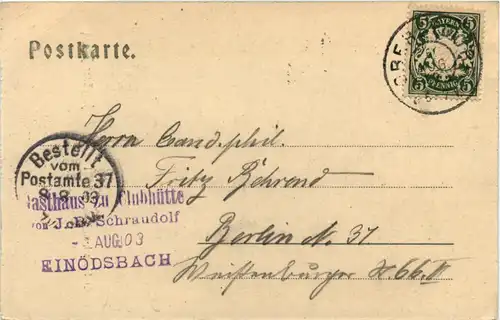 Postkarte.
5 5
BAYERN
PFENNIG
5 5
OBER
Herrn Cand. phil.
Fritz Behrend
Berlin N. 37.
Weißenburger
Bestellt
vom
Postamte 37
8 03
Gasthaus zu Clubhütte
von J. B. Schraudolf
AUG.03
EINÖDSBACH